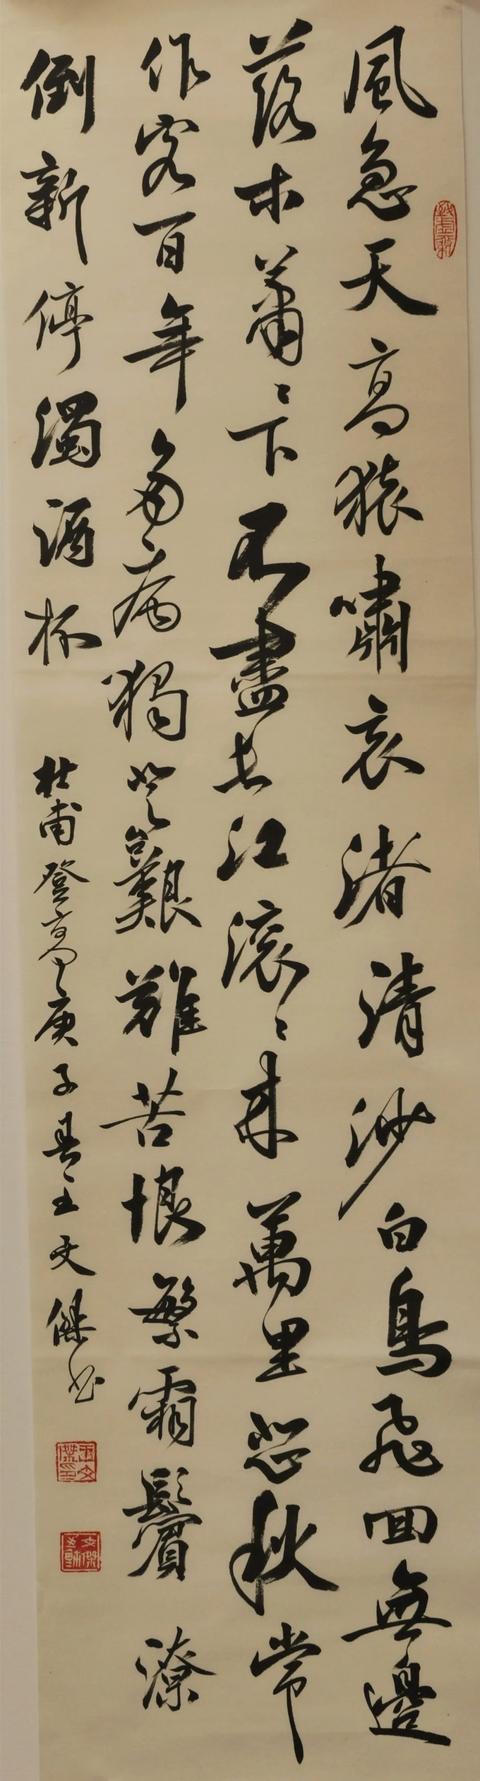 風急天高猿嘯哀渚清沙白鳥飛回無邊
落木蕭〻下不盡長江滾〻來萬里悲秋常
作客百年多病獨登臺艱難苦恨繁霜鬢潦
倒新停濁酒杯
杜甫登高庚子春王文傑書
王文傑印